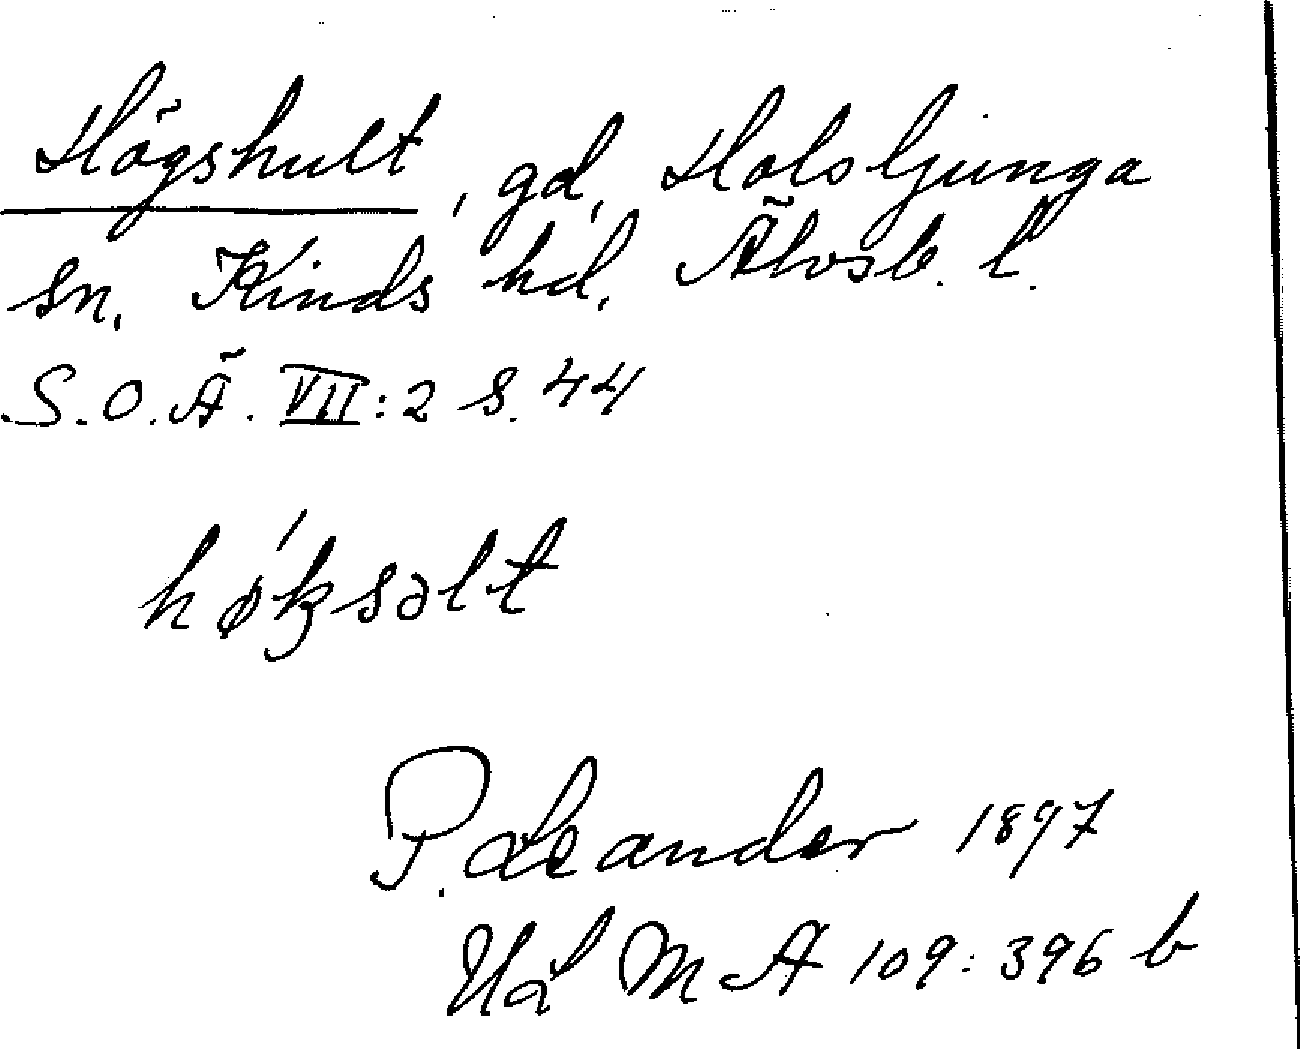 Högshult, gd, Holsljunga
sn. Kinds hd. Älvsb. l.
S.O.Ä. VII:2 s. 44
hǿksəlt
P. Leander 1897
ULMA 109:396 b